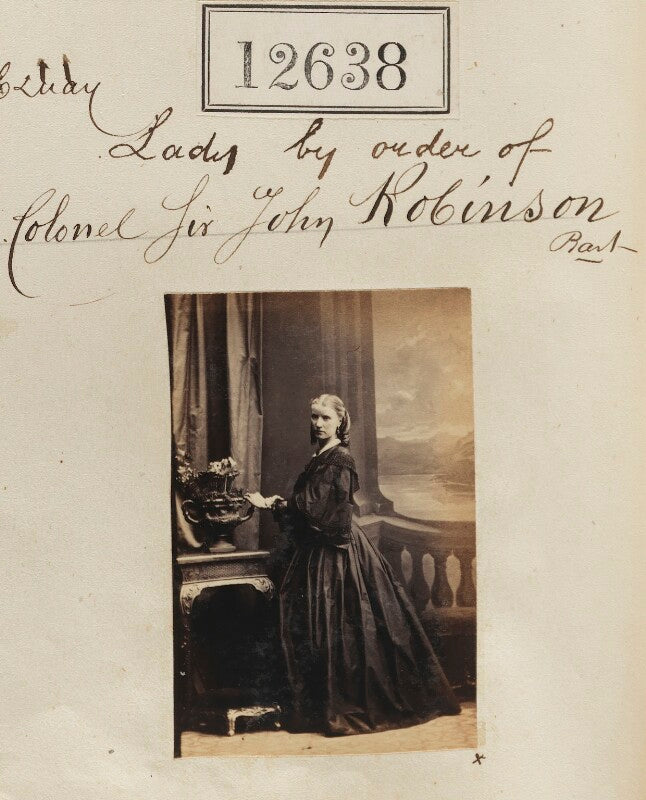 12638
Lady by order of
Colonel Sir John Robinson
Bart
x